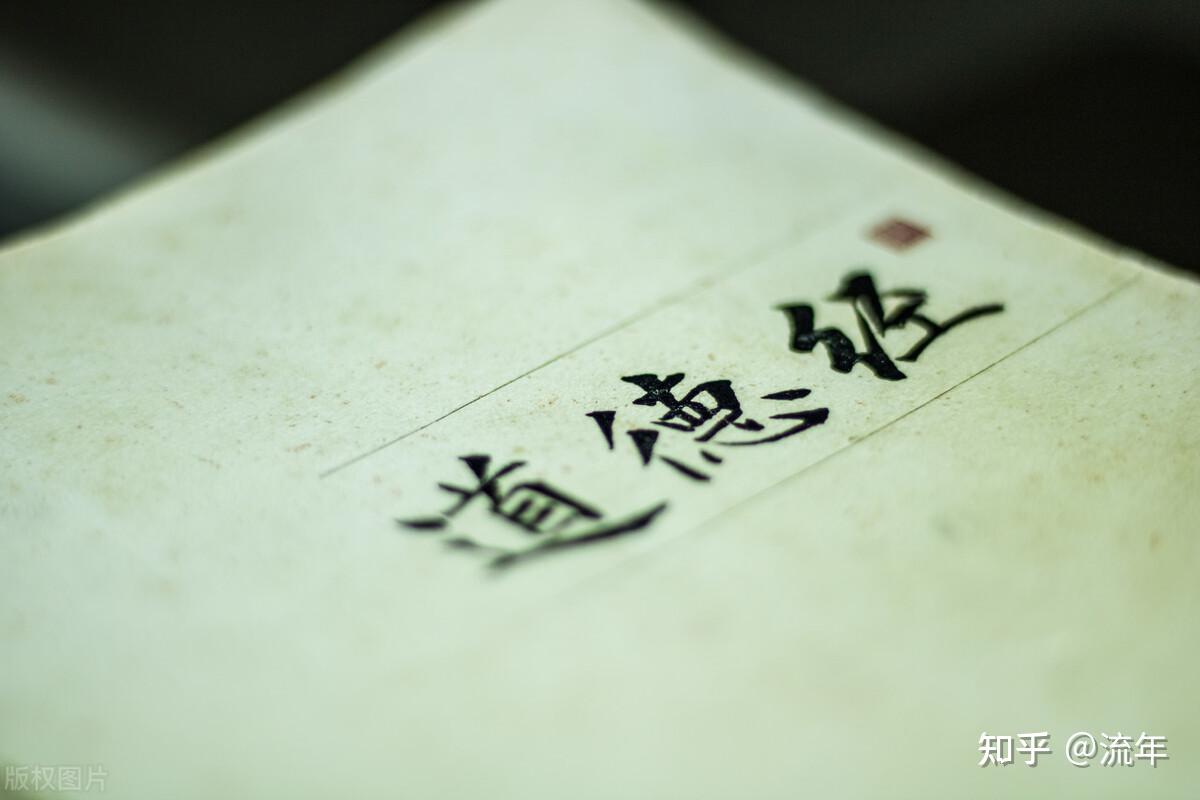 道德经
知乎 @流年
版权图片